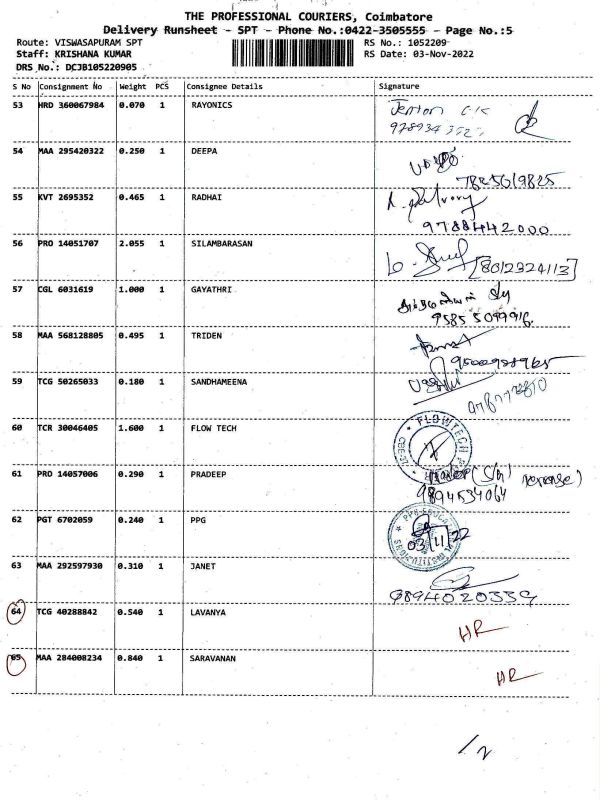 THE PROFESSIONAL COURIERS, Coimbatore
Delivery Runsheet - SPT - Phone No.:0422-3505555 - Page No.:5
Route: VISWASAPURAM SPT RS No.: 1052209
Staff: KRISHANA KUMAR RS Date: 03-Nov-2022
DRS No.: DCJB105220905
S No Consignment No Weight PCS Consignee Details Signature
53 HRD 360067984 0.070 1 RAYONICS
54 MAA 295420322 0.250 1 DEEPA
7825619825
55 KVT 2695352 0.465 1 RADHAI
9788442000
56 PRO 14051707 2.055 1 SILAMBARASAN
[8012324113]
57 CGL 6031619 1.000 1 GAYATHRI
58 MAA 568128805 0.495 1 TRIDEN
59 TCG 50265033 0.180 1 SANDHAMEENA
60 TCR 30046405 1.600 1 FLOW TECH FLOWTECH
61 PRO 14057006 0.290 1 PRADEEP
9894534064
62 PGT 6702059 0.240 1 PPG
03/11/22
63 MAA 292597930 0.310 1 JANET
9894020339
64 TCG 40288842 0.540 1 LAVANYA HR
65 MAA 284008234 0.840 1 SARAVANAN HR